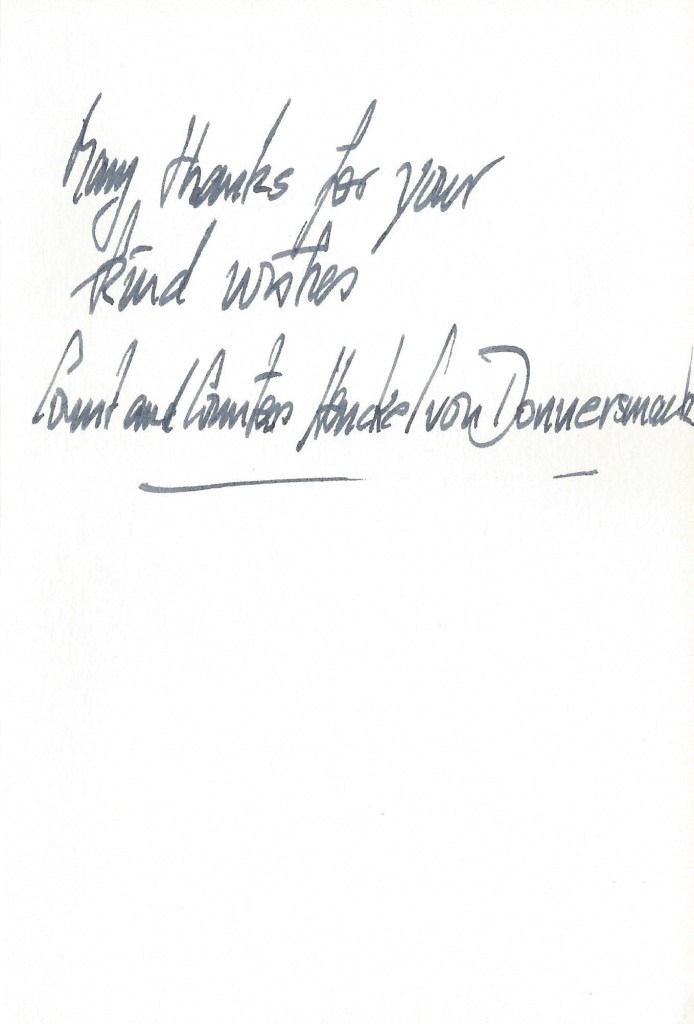 Many thanks for your
kind wishes
Count and Countess Henckel von Donnersmarck